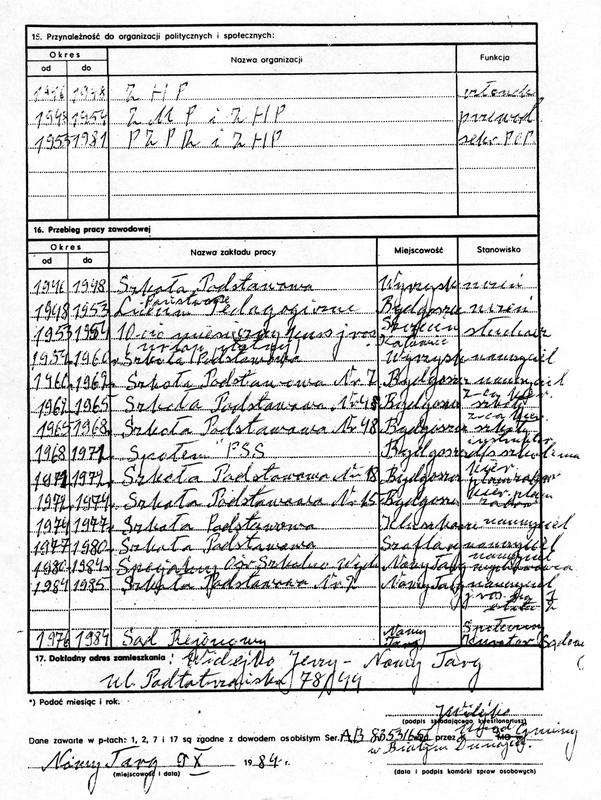 15. Przynależność do organizacji politycznych i społecznych:
Okres Nazwa organizacji Funkcja
od do
1946 1948 ZHP członek
1948 1954 ZMP i ZHP przewod.
1953 1981 PZPR i ZHP sekr. POP
16. Przebieg pracy zawodowej
Okres Nazwa zakładu pracy Miejscowość Stanowisko
od do
1946 1948 Szkoła Podstawowa Wyrzysk uczeń
Państwowe
1948 1953 Liceum Pedagogiczne Bydgoszcz uczeń
1953 1954 10-cio miesięczny kurs Szczecin
Katowice
1954 1960 Szkoła Podstawowa Wyrzysk nauczyciel
1960 1962 Szkoła Podstawowa Nr 7 Bydgoszcz nauczyciel
1962 1965 Szkoła Podstawowa Nr 48 Bydgoszcz z-ca kier. szkoły
1965 1968 Szkoła Podstawowa Nr 48 Bydgoszcz z-ca kier. szkoły
1968 1971 "Społem" PSS Bydgoszcz instruktor
1971 1972 Szkoła Podstawowa Nr 18 Bydgoszcz kier.
1972 1974 Szkoła Podstawowa Nr 15 Bydgoszcz kier.
1974 1977 Szkoła Podstawowa nauczyciel
1977 1980 Szkoła Podstawowa Szaflary nauczyciel
1980 1984 Specjalny Ośr. Szkolno Wych. Nowy Targ nauczyciel
1984 1985 Szkoła Podstawowa Nr 2 Nowy Targ nauczyciel
1976 1984 Sąd Rejonowy Nowy Targ Społeczny Kurator Sądowy
17. Dokładny adres zamieszkania: Widejko Jerzy - Nowy Targ
ul. Podtatrzańska 78/44
*) Podać miesiąc i rok.
(podpis składającego kwestionariusz)
Dane zawarte w p-tach: 1, 2, 7 i 17 są zgodne z dowodem osobistym Ser. AB przez MO
Urząd Gminy
w Białym Dunajcu
Nowy Targ IX 1984 r.
(miejscowość i data) (data i podpis komórki spraw osobowych)